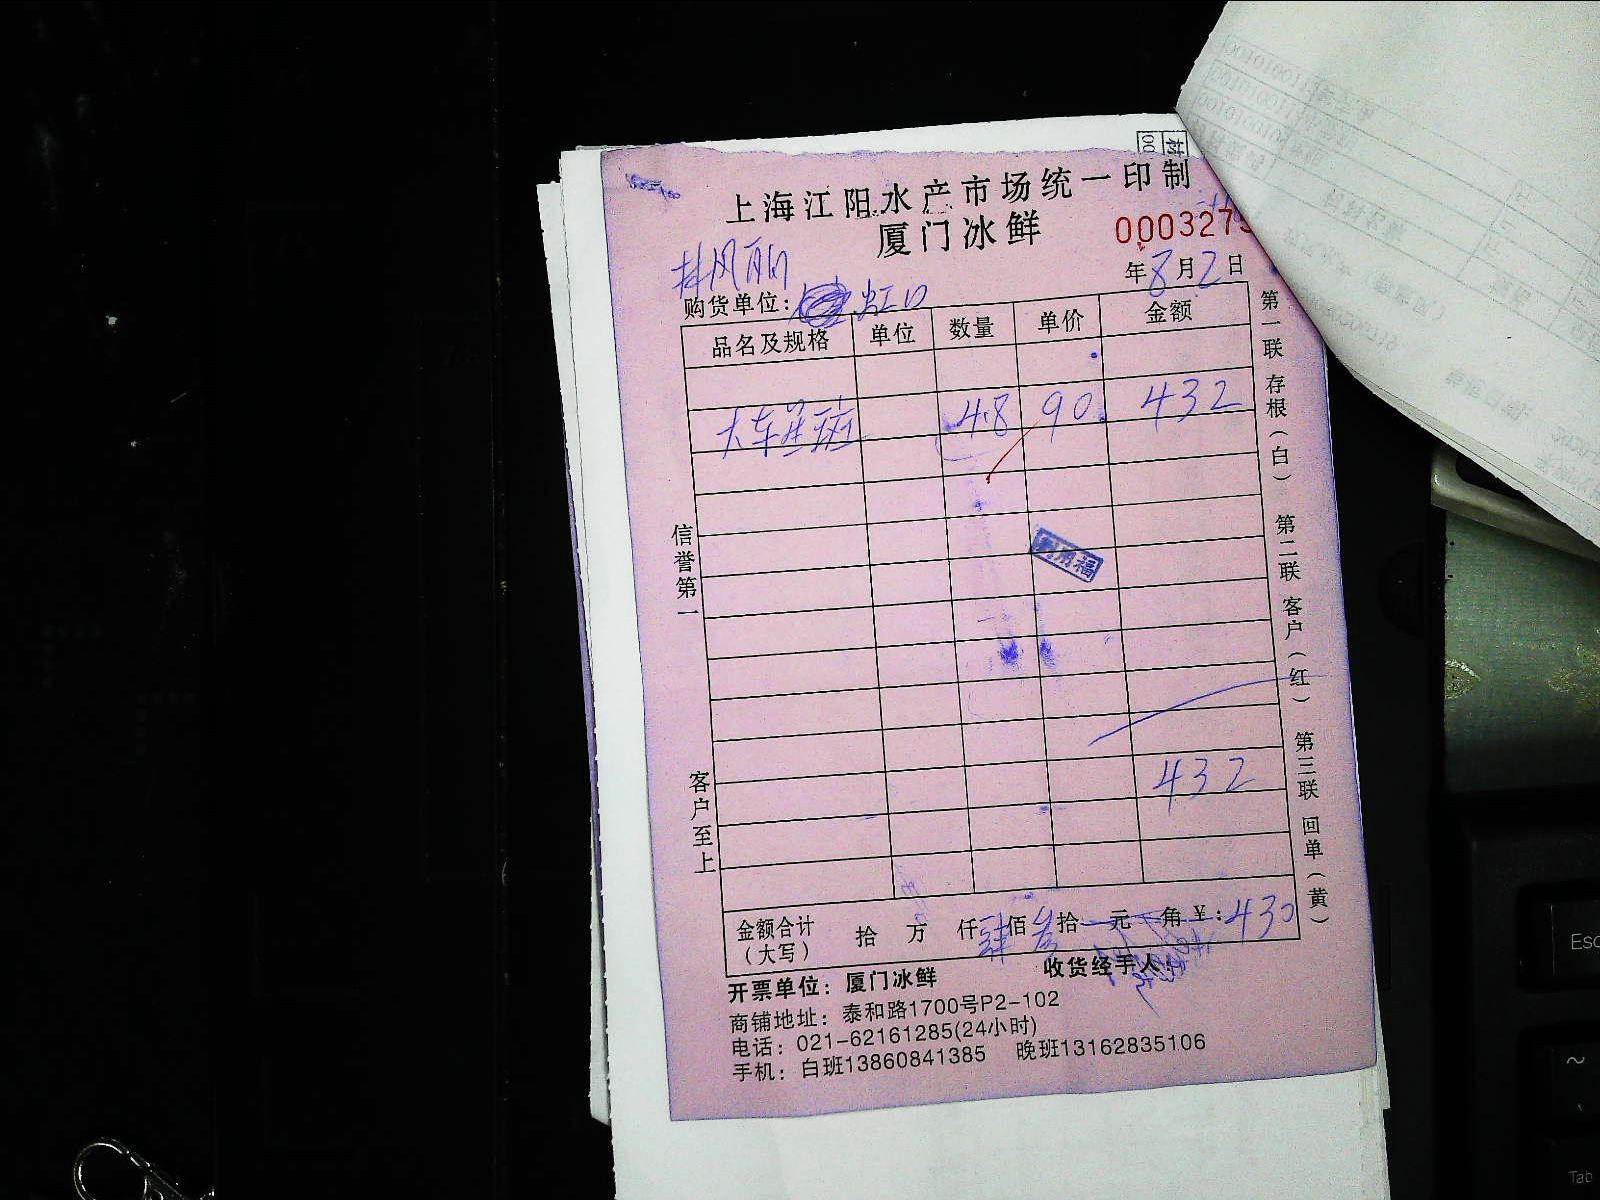 上海江阳水产市场统一印制
厦门冰鲜
000327
年8月2日
购货单位: 虹口
品名及规格 单位 数量 单价 金额
大车星斑 4.8 90 432
432
金额合计(大写) 拾 万 仟 肆 佰 叁 拾 元 角 ¥:430
开票单位: 厦门冰鲜 收货经手人:
商铺地址: 泰和路1700号P2-102
电话: 021-62161285(24小时)
手机: 白班13860841385 晚班13162835106
信誉第一
客户至上
第一联 存根(白) 第二联 客户(红) 第三联 回单(黄)
Esc
~
Tab